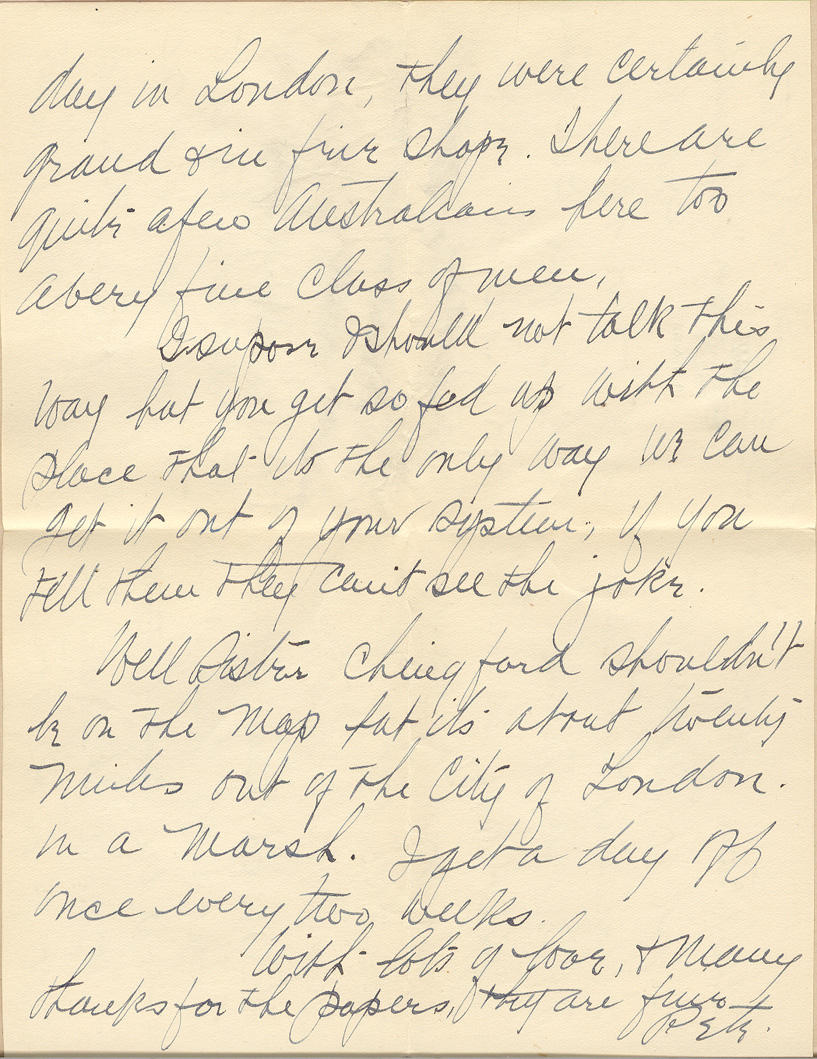 day in London, they were certainly
grand & in fine shape. There are
quite afew Australians here too
avery fine class of men,
I supose I should not talk this
way but you get so fed up with the
place that its the only way we can
get it out of your system, if you
tell them they can't see the joke.
Well Sister Chingford shouldn't
be on the map but its about twenty
miles out of the City of London.
in a marsh. I get a day off
once every two weeks.
With lots of love, & many
thanks for the papers, they are fine
Pete.